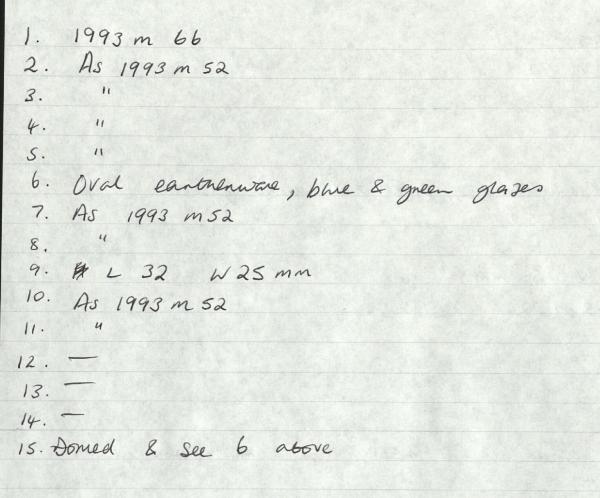 1. 1993 m 66
2. As 1993 m 52
3. "
4. "
5. "
6. Oval earthenware, blue & green glazes
7. As 1993 m 52
8. "
9. L 32 W 25 mm
10. As 1993 m 52
11. "
12. —
13. —
14. —
15. Domed & see 6 above